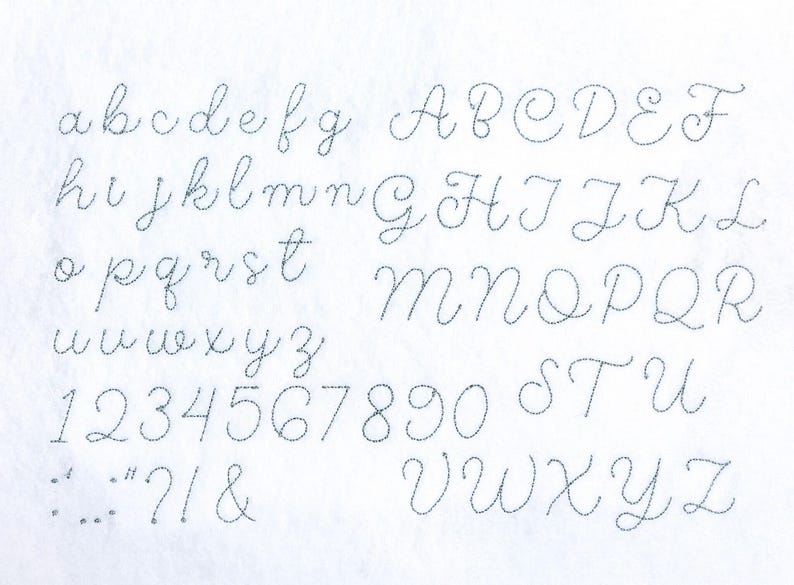 abcdefg
hijklmn
opqrst
uvwxyz
1234567890
:'.,;"?!&
ABCDEF
GHIJKL
MNOPQR
STU
VWXYZ